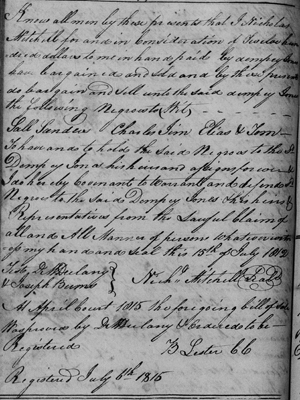 Know all men by these presents that I Nicholas
Mitchell for and in Consideration of Twelve hun
dred dollars to me in hand paid By dempsey Jones
have bargained and Sold and by these presents
do bargain and Sell unto the Said dempsey Jones
the following Negroes to (Wit)
Sall Sanders Charles Jim Elias & Tom
To have and to hold the Said Negroes to the Sd
Dempsey Jones his heirs and assigns for ever &
I do hereby Covenant to Warrant and defend Sd
Negroes to the Said Dempsey Jones & his heirs
Representatives from the Lawful Claim of
all and All Manner of persons Whatsoever
my hand and Seal this 15th of July 1812
Test
& Joseph Burns
Nichs Mitchell
At April Court 1815 the foregoing bill of
Was proved by & Ordered to be
Registered
B Lester CC
Registered July 8th 1815